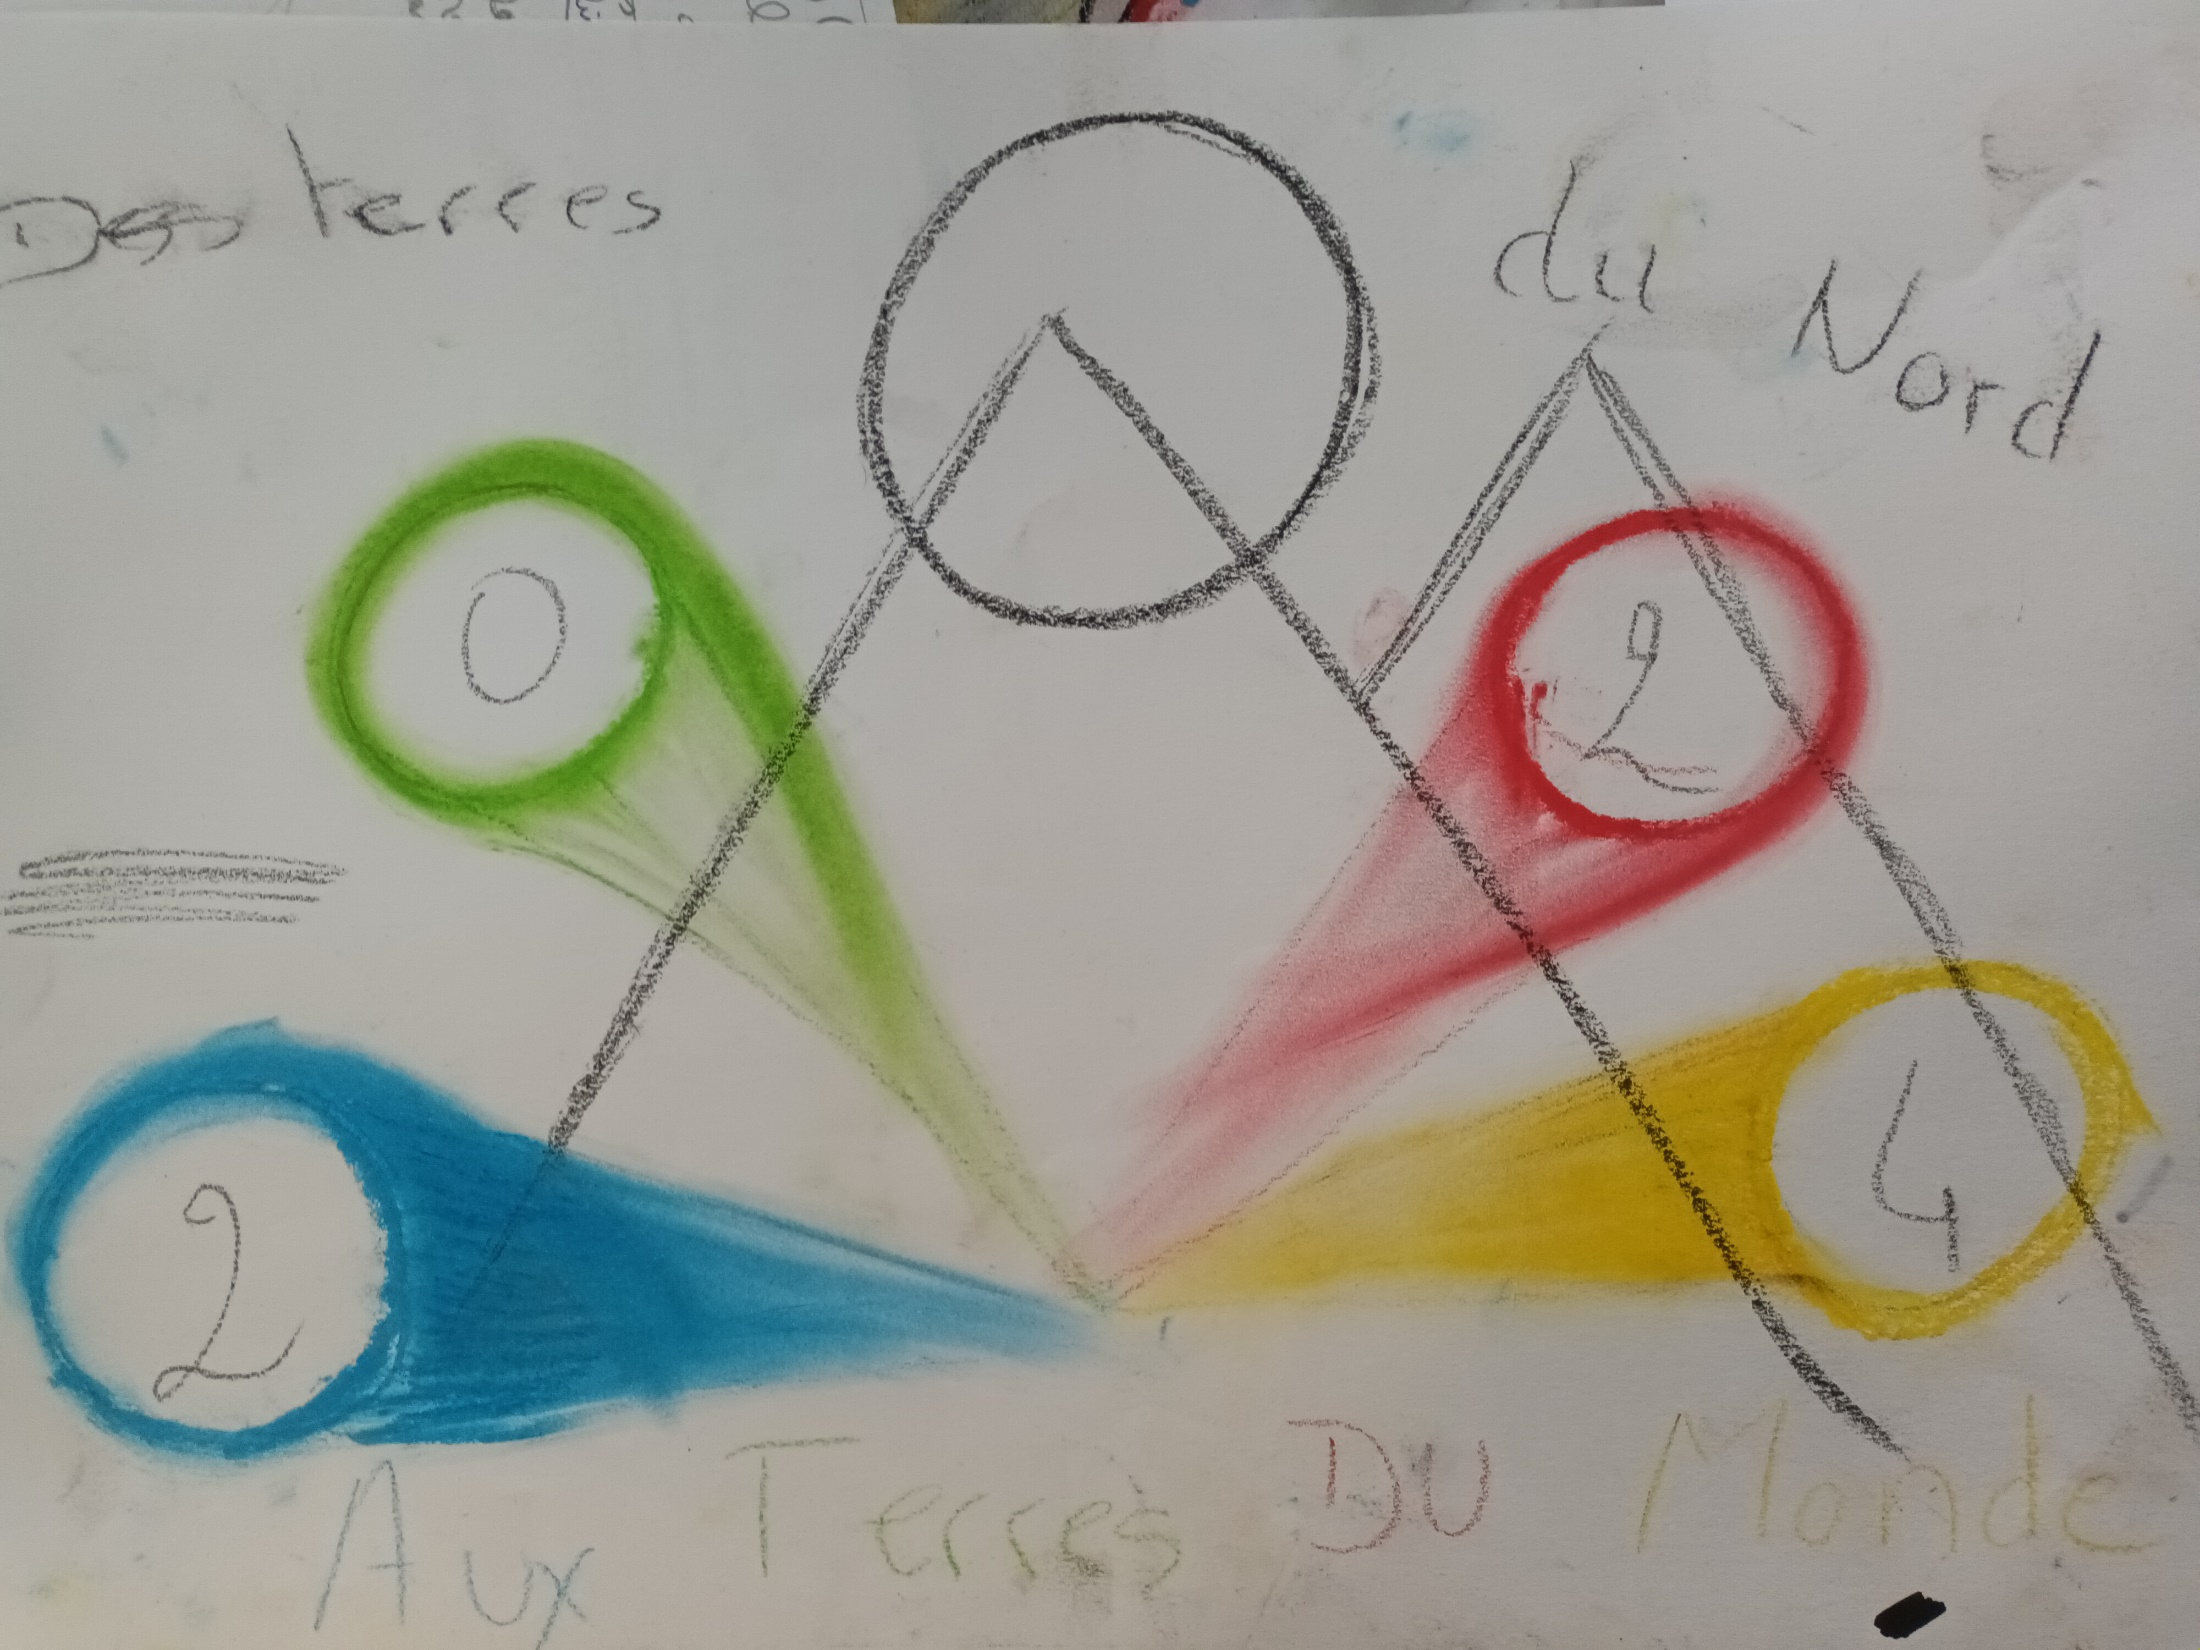 Des terres du Nord
0 2
2 4
Aux Terres Du Monde